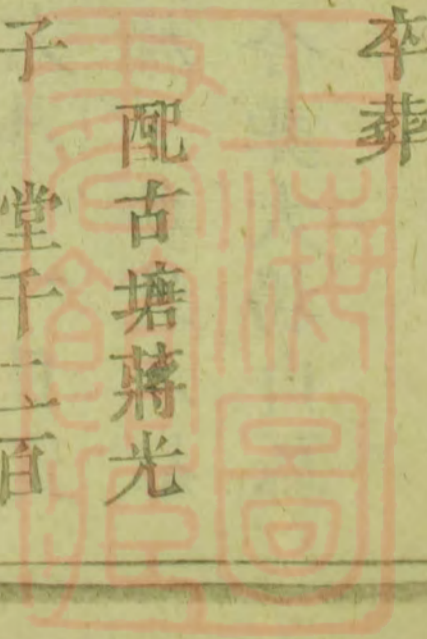 卒葬
配古塘蔣光
子　堂千二百
上海圖書館藏